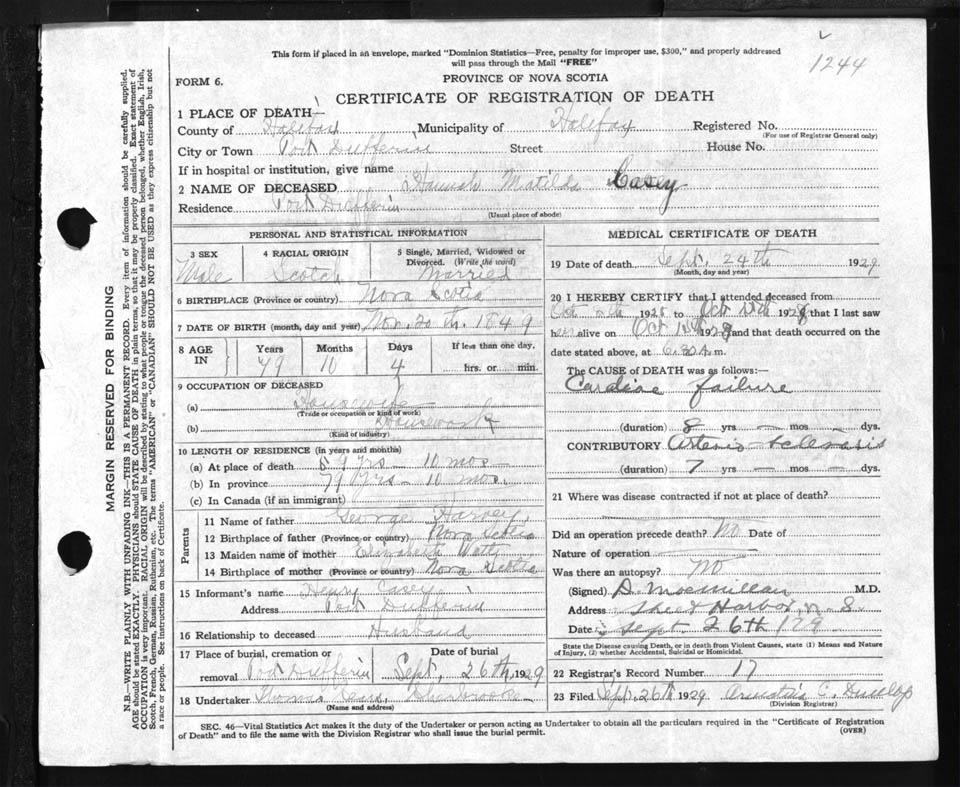 1244
This form if placed in an envelope, marked "Dominion Statistics—Free, penalty for improper use, $300," and properly addressed
will pass through the Mail "FREE"
FORM 6.
PROVINCE OF NOVA SCOTIA
CERTIFICATE OF REGISTRATION OF DEATH
1 PLACE OF DEATH—
County of Halifax Municipality of Halifax Registered No.
(For use of Registrar General only)
City or Town Port Dufferin Street House No.
If in hospital or institution, give name
2 NAME OF DECEASED Hannah Matilda Casey
Residence Port Dufferin
(Usual place of abode)
MARGIN RESERVED FOR BINDING
N.B.—WRITE PLAINLY WITH UNFADING INK—THIS IS A PERMANENT RECORD. Every item of information should be carefully supplied.
AGE should be stated EXACTLY. PHYSICIANS should STATE CAUSE OF DEATH in plain terms, so that it may be properly classified. Exact statement of
OCCUPATION is very important. RACIAL ORIGIN will be described by stating to what people or tongue the deceased person belonged, whether English, Irish,
Scotch, French, German, Russian, Ruthenian, etc. The terms "AMERICAN" or "CANADIAN" SHOULD NOT BE USED as they express citizenship but not
a race or people. See instructions on back of Certificate.
PERSONAL AND STATISTICAL INFORMATION
3 SEX
Male
4 RACIAL ORIGIN
Scotch
5 Single, Married, Widowed or
Divorced. (Write the word)
Married
6 BIRTHPLACE (Province or country) Nova Scotia
7 DATE OF BIRTH (month, day and year) Nov. 20th. 1849
8 AGE IN
Years Months Days If less than one day,
79 10 4 hrs. or min.
9 OCCUPATION OF DECEASED
(a) Housewife
(Trade or occupation or kind of work)
(b) Housework
(Kind of industry)
10 LENGTH OF RESIDENCE (in years and months)
(a) At place of death 59 yrs — 10 mos —
(b) In province 79 yrs — 10 mos.
(c) In Canada (if an immigrant)
Parents
11 Name of father George Harvey
12 Birthplace of father (Province or country) Nova Scotia
13 Maiden name of mother Elizabeth Watt
14 Birthplace of mother (Province or country) Nova Scotia
15 Informant's name Henry Casey
Address Port Dufferin
16 Relationship to deceased Husband
17 Place of burial, cremation or Date of burial
removal Port Dufferin Sept. 26th, 1929
18 Undertaker Thomas Sherbrooke
MEDICAL CERTIFICATE OF DEATH
19 Date of death Sept. 24th 1929
(Month, day and year)
20 I HEREBY CERTIFY that I attended deceased from
Oct 1928 to Oct 1928 that I last saw
her alive on Oct 1928 and that death occurred on
date stated above, at m.
The CAUSE of DEATH was as follows:—
Cardiac failure
(duration) 8 yrs — mos — dys.
CONTRIBUTORY Arterio sclerosis
(duration) 7 yrs — mos — dys.
21 Where was disease contracted if not at place of death?
Did an operation precede death? No Date of
Nature of operation
Was there an autopsy? No
(Signed) D. Macmillan M.D.
Address Sheet Harbor, N.S.
Date Sept 26th / 29
State the Disease causing Death, or in death from Violent Causes, state (1) Means and Nature
of Injury, (2) whether Accidental, Suicidal or Homicidal.
22 Registrar's Record Number 17
23 Filed Sept. 26th 1929. C. Dunlop
(Division Registrar)
SEC. 46—Vital Statistics Act makes it the duty of the Undertaker or person acting as Undertaker to obtain all the particulars required in the "Certificate of Registration
of Death" and to file the same with the Division Registrar who shall issue the burial permit.
(OVER)